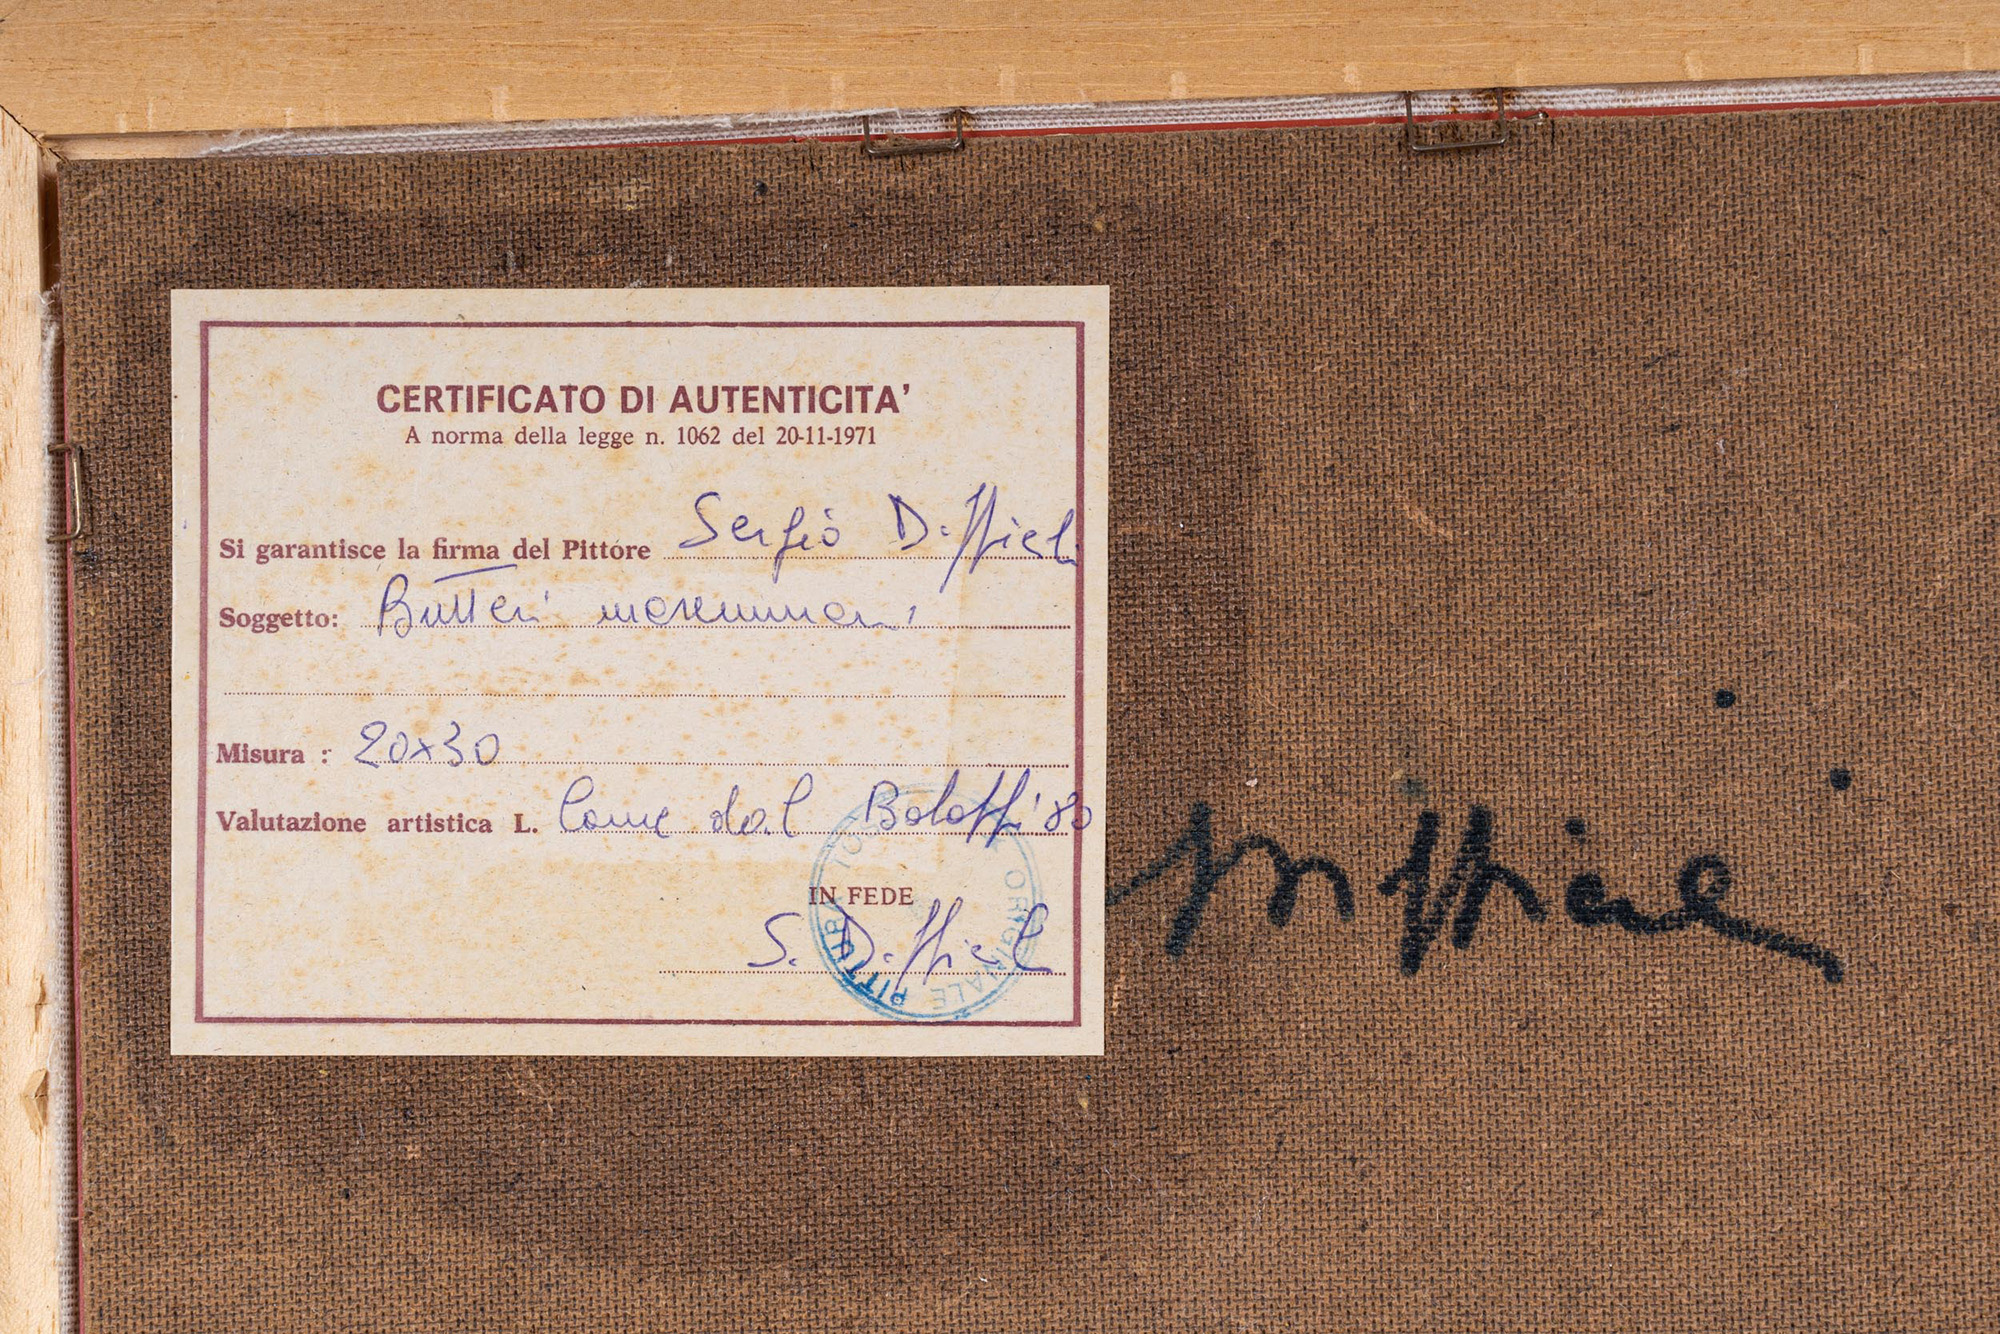 CERTIFICATO DI AUTENTICITA'
A norma della legge n. 1062 del 20-11-1971
Si garantisce la firma del Pittore Sergio Difficil
Soggetto: Butteri maremmani
Misura : 20x30
Valutazione artistica L. Come dal Bolaffi '80
IN FEDE
S. Difficil
PITTURA ORIGINALE